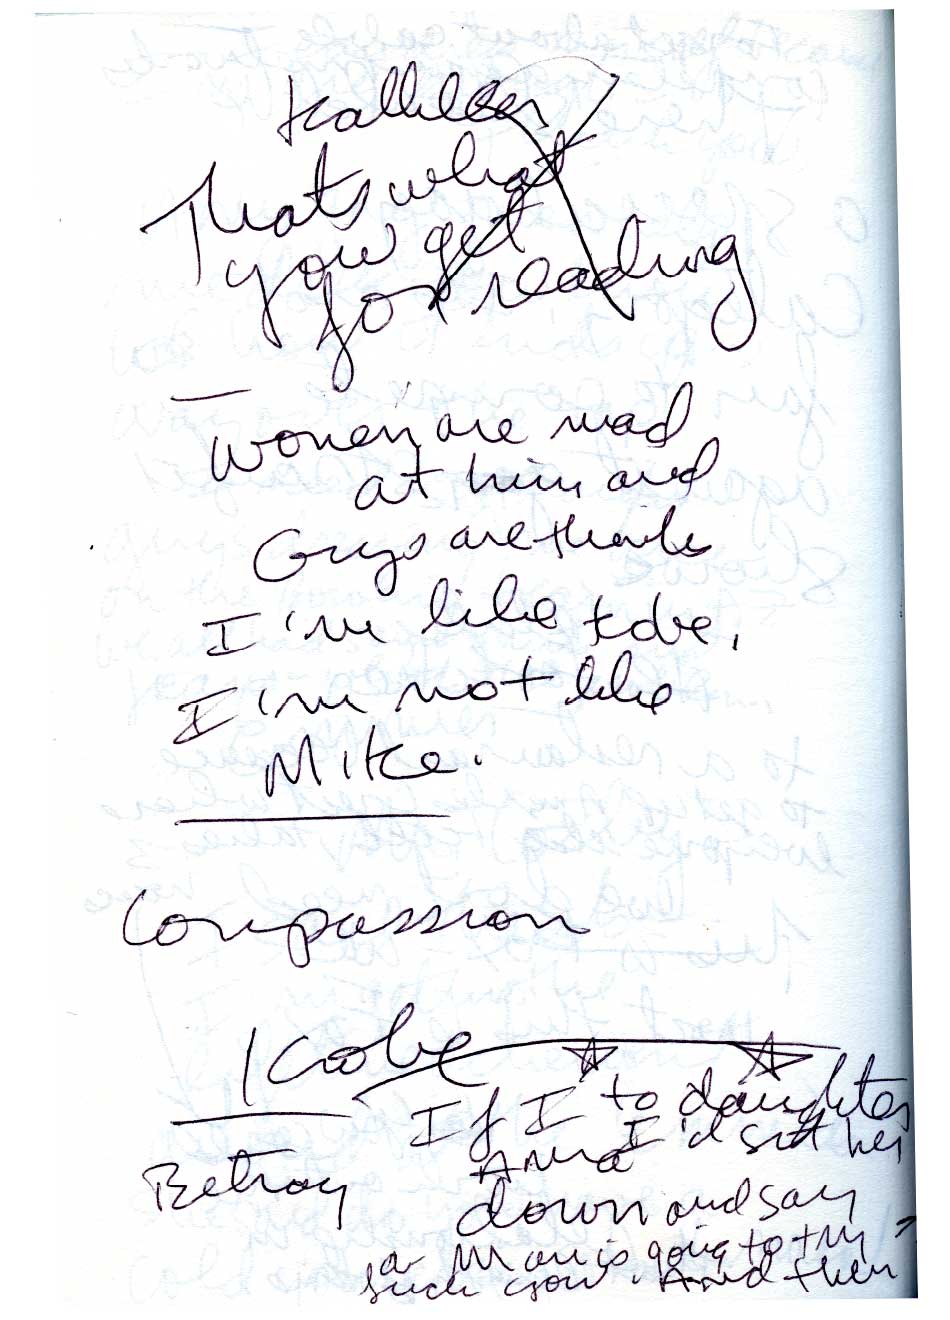 Kathleen
That's what
you get
for reading
Women are mad
at him and
Guys are thinks
I'm like Kobe,
I'm not like
Mike.
Compassion
Kobe
If I to daughter
Anna I'd sit her
Betray
down and say
a Man is going to try
And then